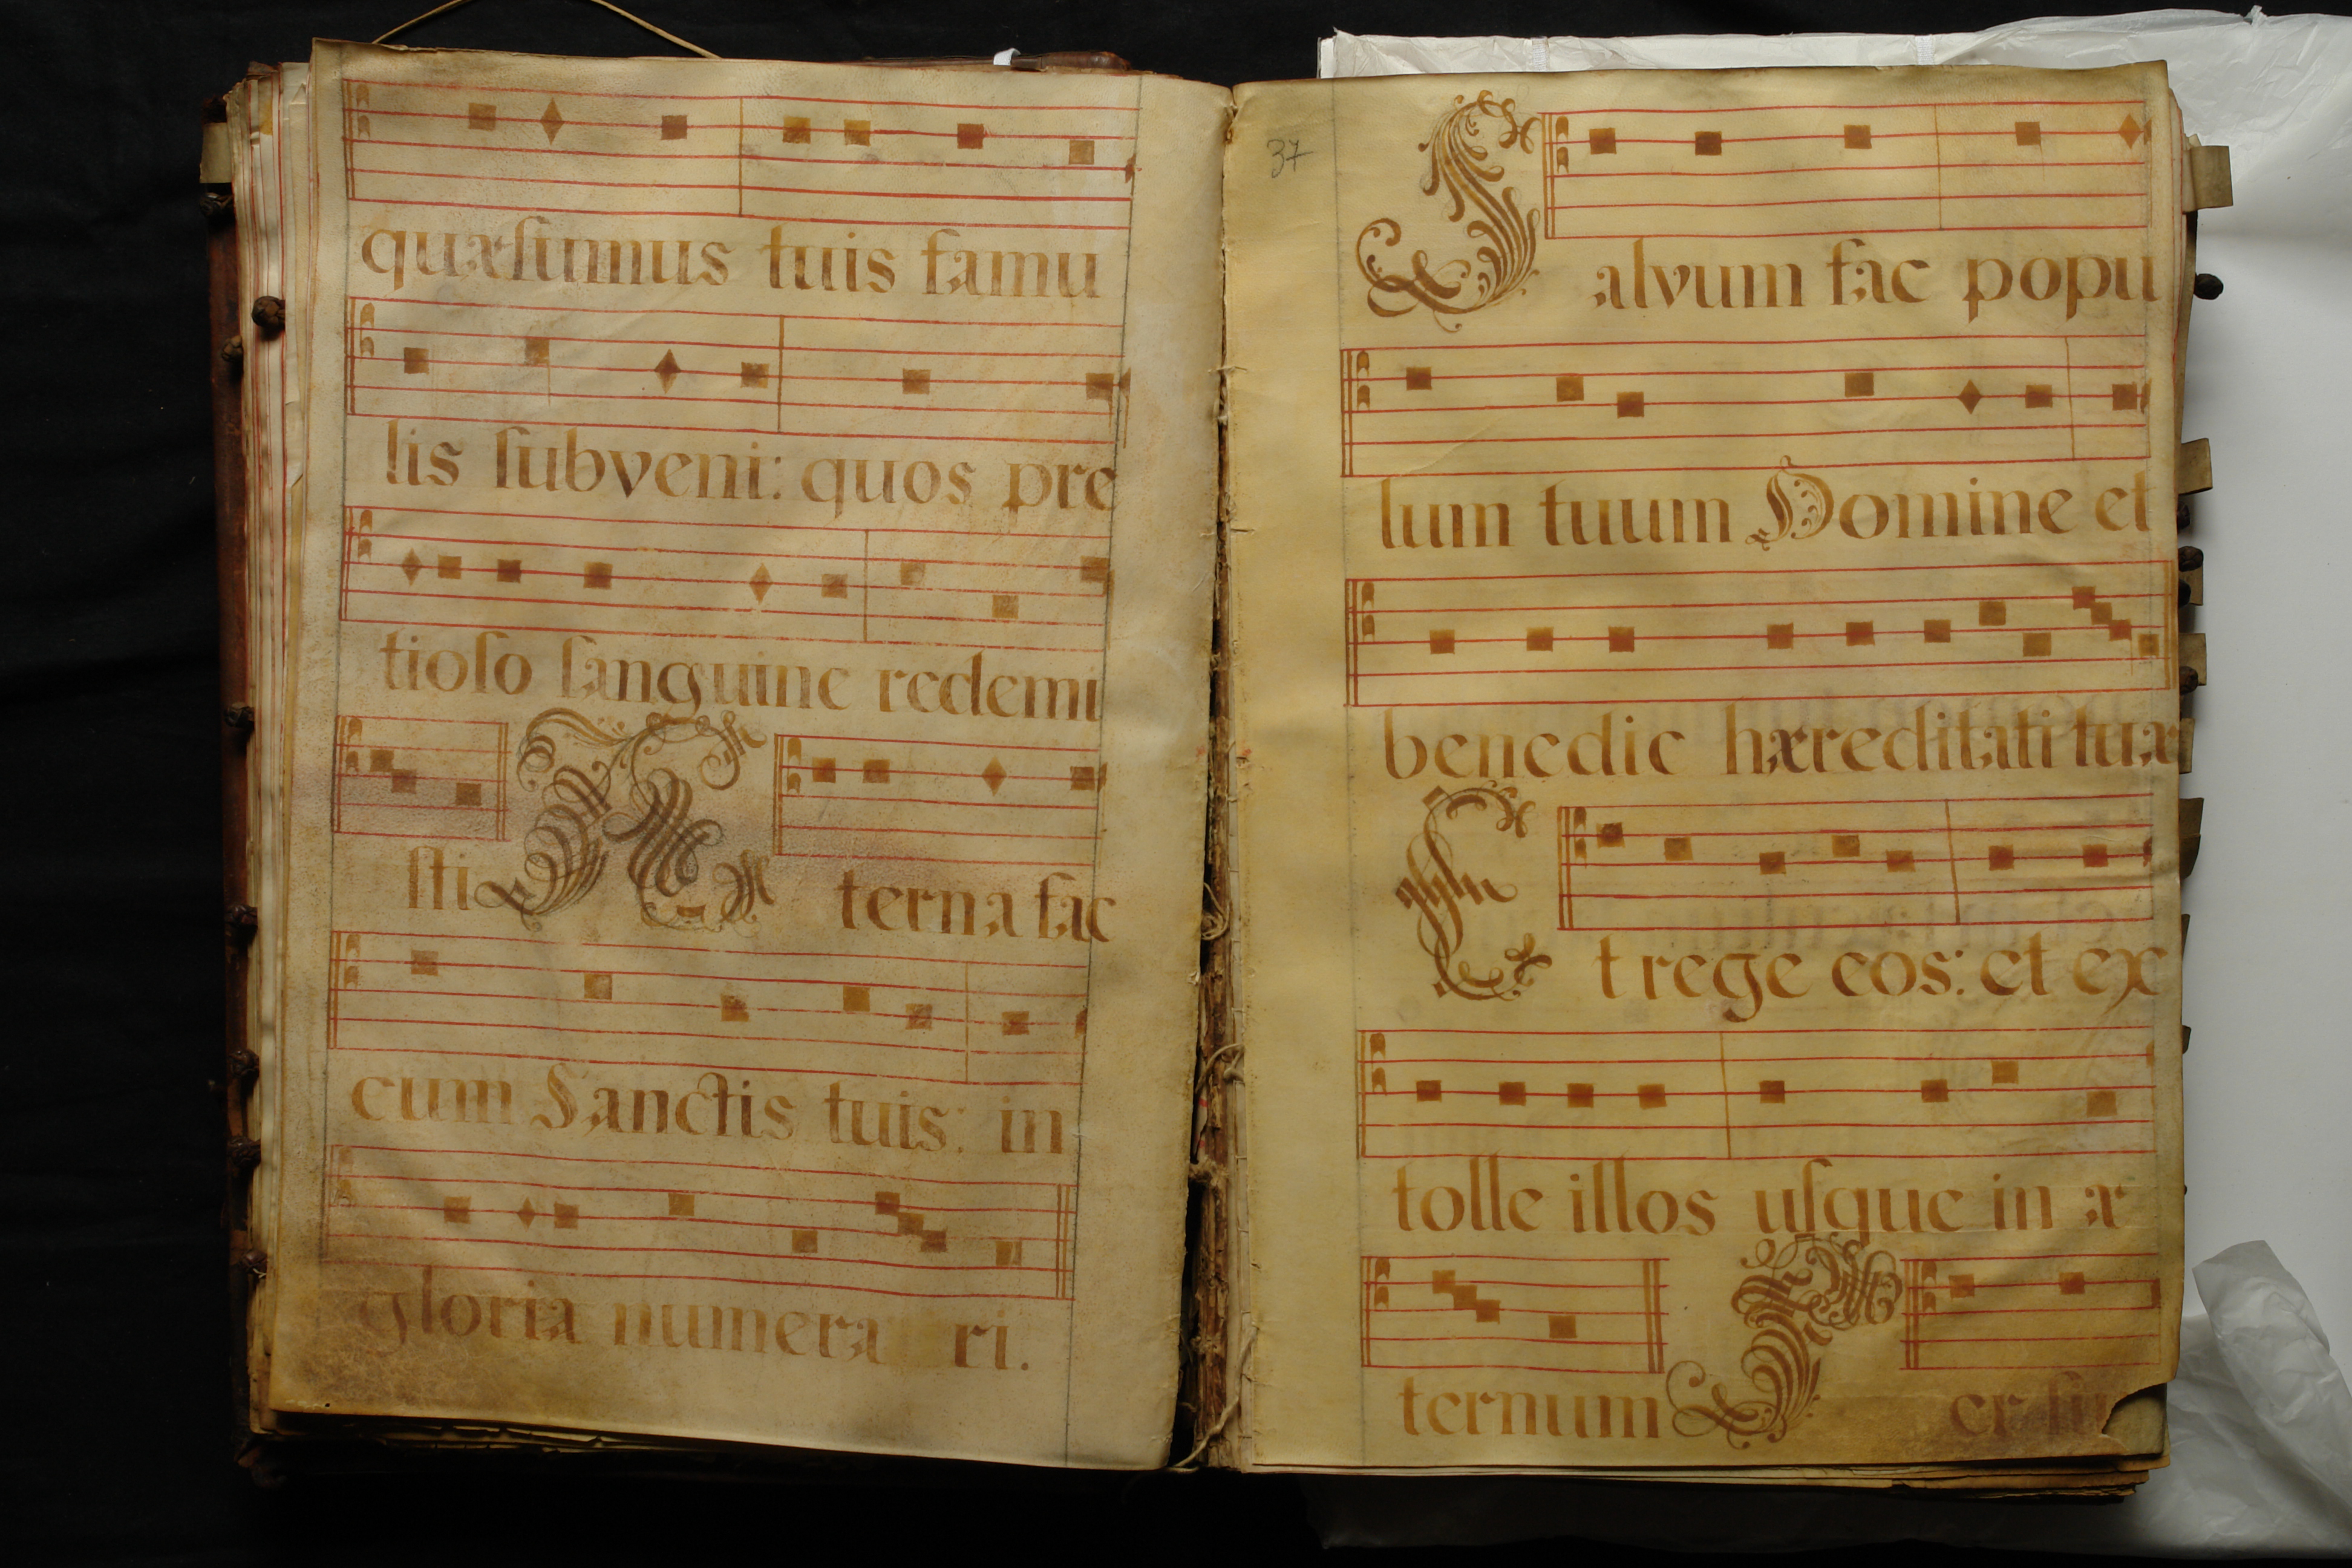 quæſumus tuis famu
lis ſubveni: quos pre
tioſo ſanguine redemi
ſti Æterna fac
cum Sanctis tuis: in
gloria numera ri.
37
Salvum fac popu
lum tuum Domine et
benedic hæreditati tuæ
Et rege eos: et ex
tolle illos uſque in æ
ternum Per ſin